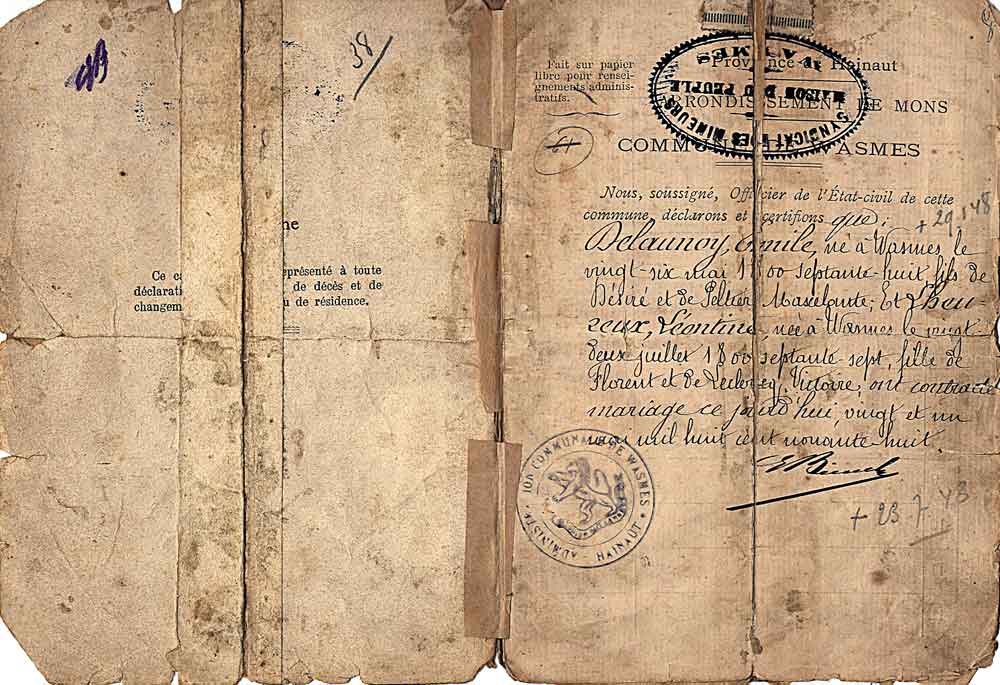 38
ne
Ce ca eprésenté à toute
déclarati de décès et de
changem u de résidence.
Fait sur papier
libre pour rensei-
gnements adminis-
tratifs.
Province Hainaut
RRONDISSEMENT DE MONS
COMMUN WASMES
SYNDICAT DES MINEURS
MAISON DU PEUPLE
WASMES
Nous, soussigné, Officier de l'État-civil de cette
commune, déclarons et certifions que :
+ 29.1.48
Delaunoy, Emile, né à Wasmes le
vingt-six mai 1800 septante-huit, fils de
Désiré et de Peltier, ; Et Lheu-
reux, Léontine née à Wasmes le vingt-
deux juillet 1800 septante sept, fille de
Florent et de Leclercq, Victoire, ont contracté
mariage ce jourd'hui, vingt et un
mil huit cent nonante-huit.
+ 23 7 43
ADMINISTR ION COMMUNALE DE WASMES
HAINAUT